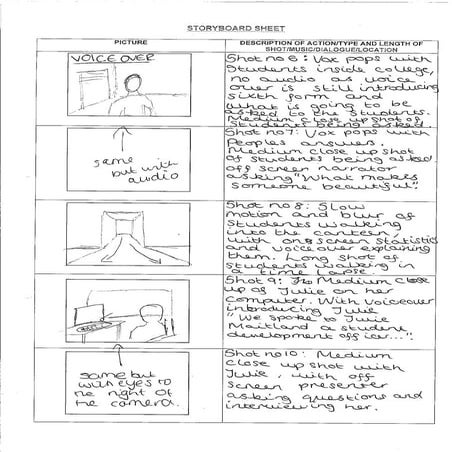 STORYBOARD SHEET
PICTURE
DESCRIPTION OF ACTION/TYPE AND LENGTH OF
SHOT/MUSIC/DIALOGUE/LOCATION
VOICE OVER
Shot no 6: Vox pops with
Students inside college,
no audio as voice
over is still introducing
sixth form and
what is going to be
asked to the students.
Medium close up shot of
students being asked.
same
but with
audio
Shot no 7: Vox pops with
Peoples answers.
Medium close up shot
of students being asked
off screen narrator
asking "What makes
someone beautiful".
Shot no 8: Slow
motion and blur of
students walking
into the canteen,
with on screen statistics
and voiceover explaining
them. Long shot of
students walking in
a time lapse.
Shot 9: Medium close
up of Julie on her
computer. With voiceover
introducing Julie
"We spoke to Julie
Maitland a student
development officer...".
same but
with eyes to
the right of
the camera.
Shot no 10: Medium
close up shot with
Julie, with off
screen presenter
asking questions and
interviewing her.